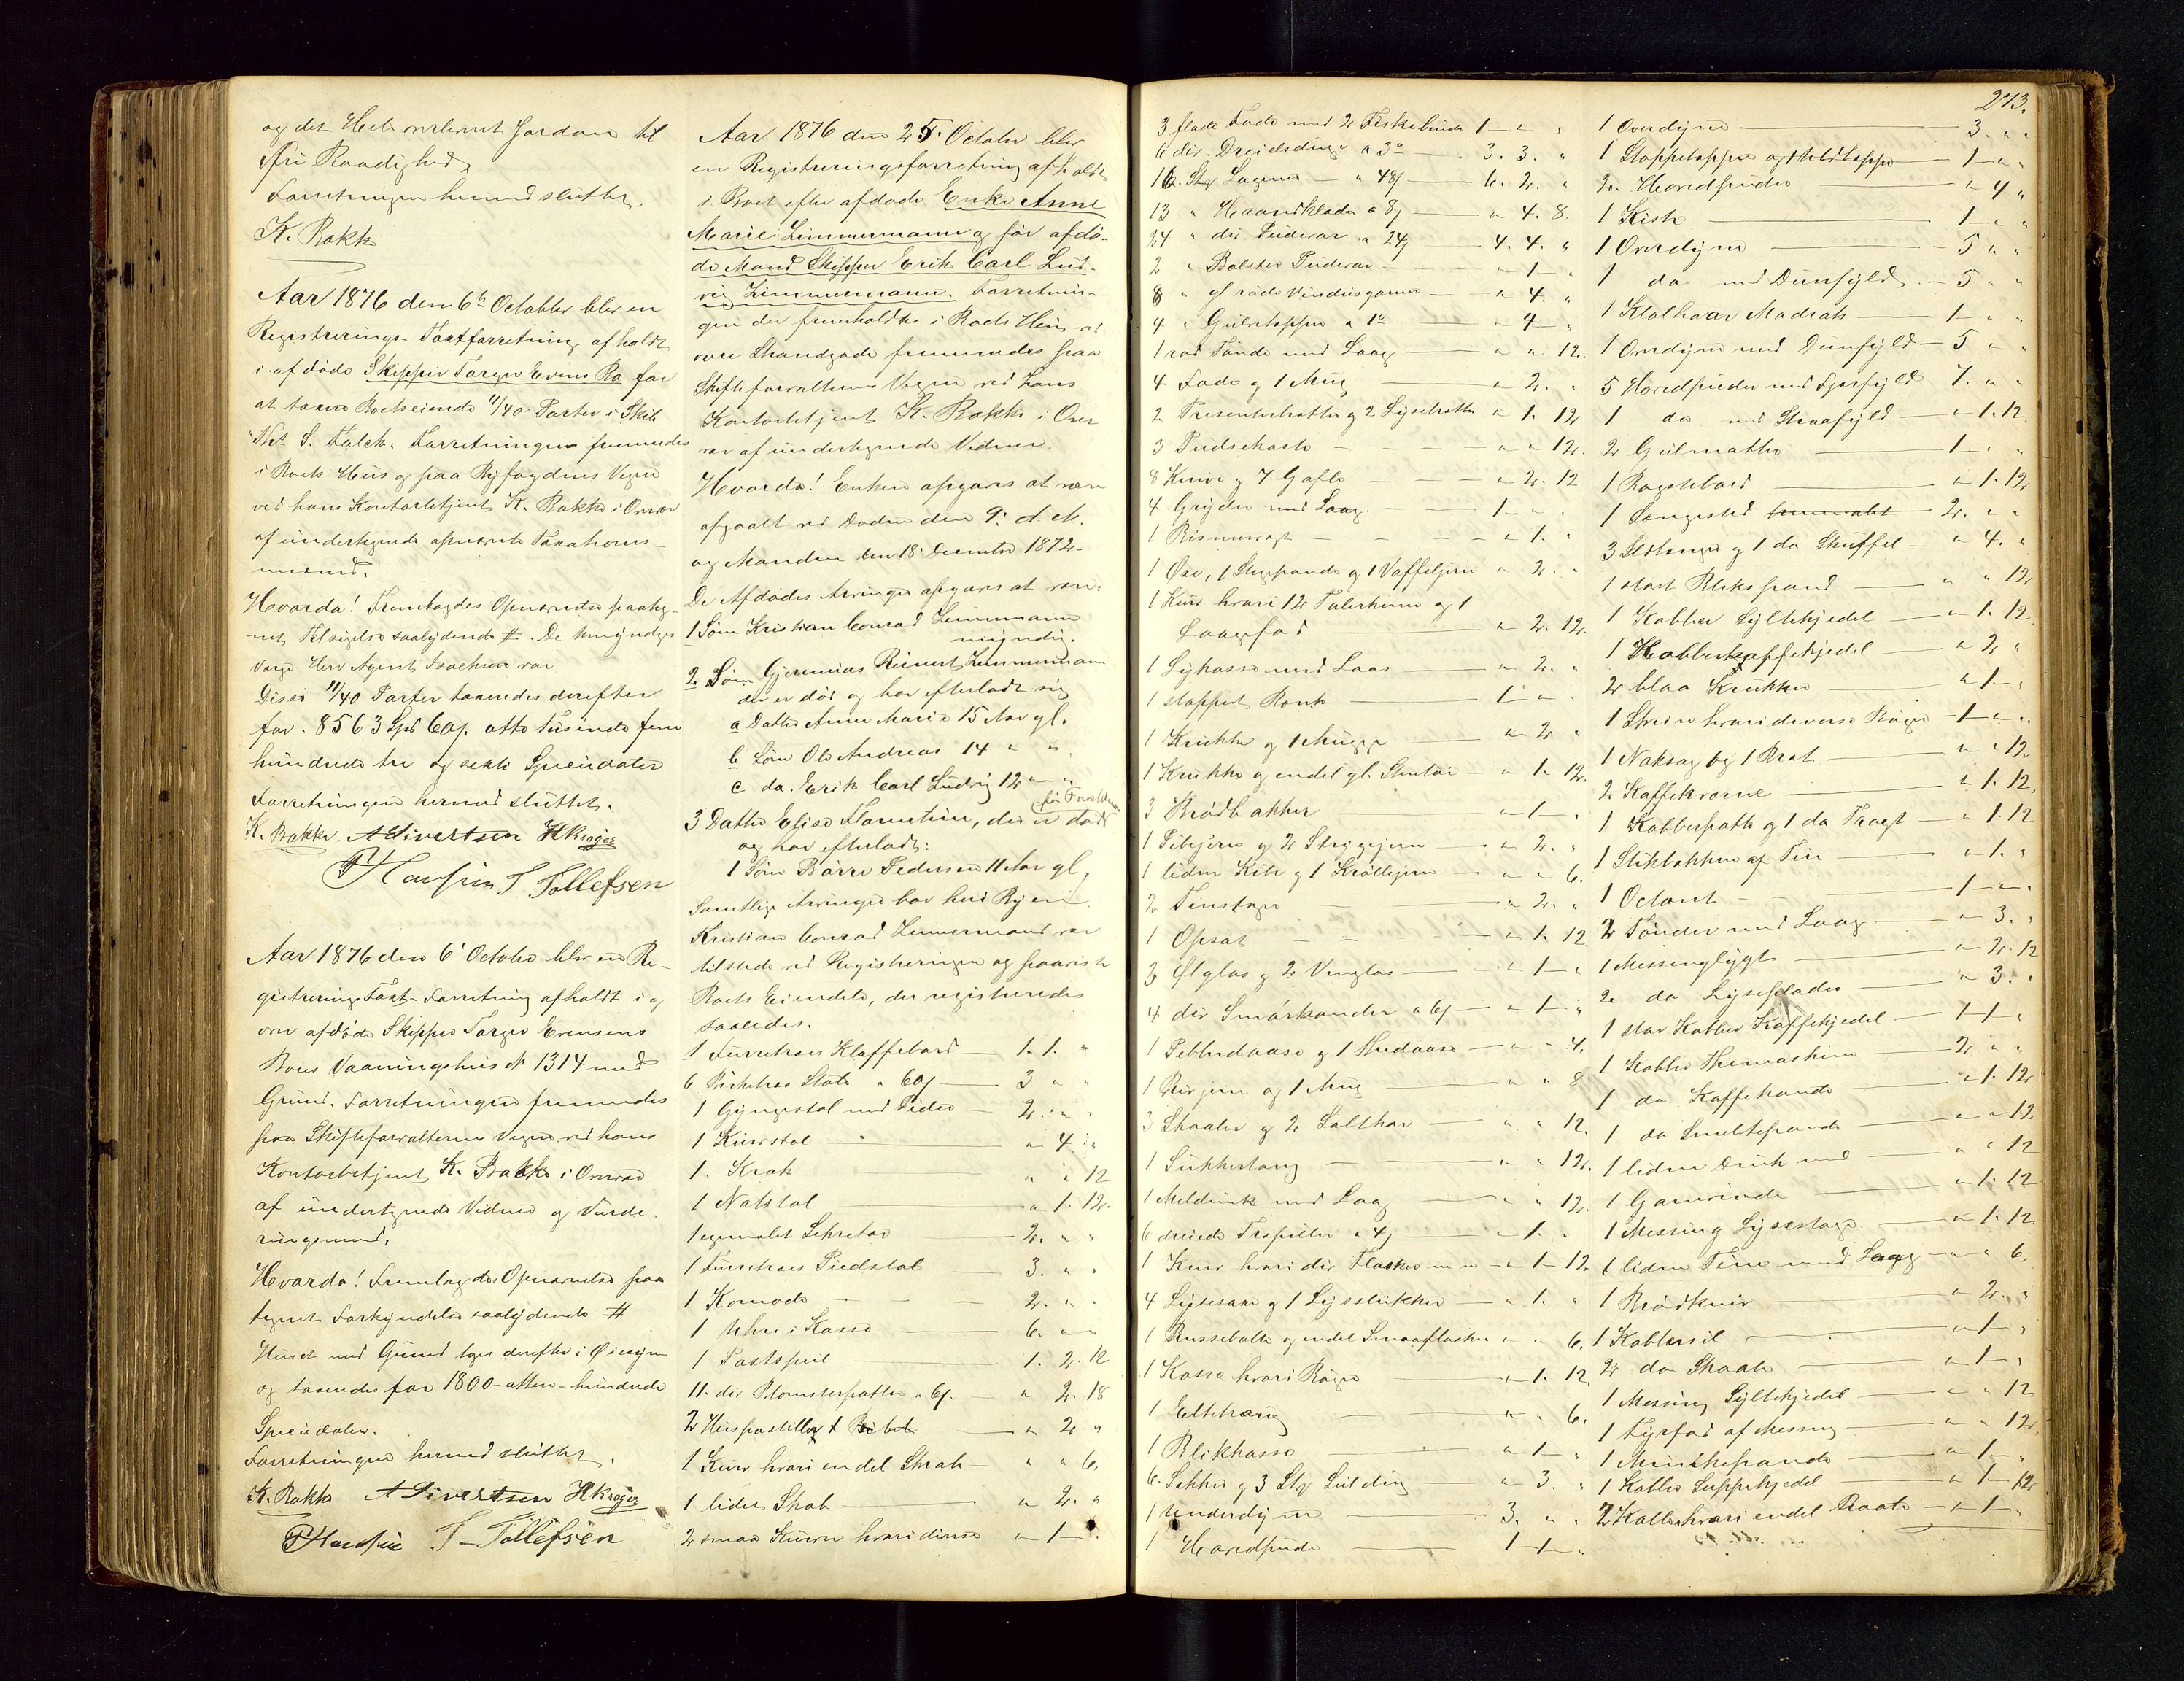 og det Hele overleveret Jordan til
fri Raadighed.
Forretningen hermed sluttet.
K. Bakke
Aar 1876 den 6te Octobber blev en
Registrerings-Taxtforretning afholdt
i afdöde Skipper Torger Evens Bo for
at taxere Boets eiende 11/40 Parter i Skib
Forretningen fremmedes
i Boets Huus og paa Byfogdens Vegne
ved hans Kontorbetjent K. Bakke i Overvær
af undertegnede opnævnte Taxations-
mænd.
Hvorda! Fremlagdes Opnævnelse paateg-
net Tilsigelse saalydende #. De Umyndiges
Værge Herr Agent Isachsen var
Disse 11/40 Parter taxeredes derefter
for 8563 Spd Cop. otte Tusinde fem
hundrede tre og sexti Speciedaler
Forretningen hermed sluttet.
K. Bakke. A Sivertsen H Krøger
T Tollefsen
Aar 1876 den 6 Octobr blev en Re-
gistrerings Taxt-Forretning afholdt i og
over afdöde Skipper Torger Evensens
Boes Vaaningshuus No 1314 med
Grund. Forretningen fremmedes
paa Skifteforvalterens Vegne ved hans
Kontorbetjent K. Bakke i Overvær
af undertegnede Vidner og Vurde-
ringsmænd.
Hvorda! Fremlagdes Opnævnelse paa
tegnet Forkyndelse saalydende #
Huset med Grund toges derefter i Øiesyn
og taxeredes for 1800-atten-hundrede
Speciedaler.
Forretningen hermed sluttet.
K. Bakke A Sivertsen H Krøger
T- Tollefsen
Aar 1876 den 25. Octobr blev
en Registreringsforretning afholdt
i Boet efter afdöde Enke Anne
Marie Zimmermann og för afdö-
de Mand Skipper Erik Carl Lud-
vig Zimmermann. Forretnin-
gen der fremholdtes i Boets Huus ved
övre Strandgade fremmedes paa
Skifteforvalterens Vegne ved hans
Kontorbetjent K. Bakke i Over
vær af undertegnede Vidner.
Hvorda! Enken opgaves at være
afgaaet ved Döden den 9. d. M.
og Manden den 18 Decembr 1872.
De Afdödes Arvinger opgaves at være:
1 Sön Kristian Conrad Zimmermann
myndig.
2. Sön Gjeremias Reinert Zimmermann
der er död og har efterladt sig
a Datter Anne Marie 15 Aar gl.
b Sön Ole Andreas 14 " ".
c do. Erik Carl Ludvig 12 " "
för Forældrene
3 Datter Elise Florentine, der er död
og har efterladt:
1 Sön Börre Pedersen 11 Aar gl.
Samtlige Arvinger bor her i Byen
Kristian Conrad Zimmermand var
tilstede ved Registreringen og paaviste
Boets Eiendele, der registreredes
saaledes.
1 Furretræes Klaffebord — 1. 1. "
6 Birketræs Stole a 60 s — 3 " "
1 Gyngestol med Puder — 2. " "
1 Kurvstol " 4. "
1. Krak " " 12
1 Natstol " 1. 12.
1 egemalet Sekretær — 2. " "
1 Furretræes Piedstal — 3. " "
1 Komode — 2. " "
1 Uhr i Kasse — 6. " "
1 Taxtspeil — 1. 2. 12
11. div Blomsterpotter a 6 s. " 2. 18
2 Huuspostiller 1 Bibel — " 2 "
1 Kurv hvori en del Skrab — " " 6.
1 liden Skab — " 2. "
2 smaa Kurve hvori diverse " 1 — "
273.
3 flade Fade med 2 Fiskebunde 1 — " "
6 div. Dreielsduge a 3 — 3. 3. "
16. Stk Lagener — a 48 s — 6. 2. "
13 " Haandklæder a 8 s — " 4. 8.
24 " div Pudevar a 24 s 4. 4. "
2 " Bolster Pudevar — " 1 — "
8 " gl röde Vinduesgardiner — " 4. "
4 " Gulvtepper a 1 — " 4 — "
1 röd Tönde med Laag — " " 12.
4 Fade og 1 Mug — " 2. "
2 Presenterbretter og 2 Lysebretter " 1. 12
3 Pudsekaste — " " 12.
8 Knive og 7 Gafler — " 2. 12
4 Gryder med Laag. — 1 — " "
1 Bismervægt — — " 1. "
1 Öxe, 1 Stegepande og 1 Vaffeljern " 2. "
1 Kurv hvori 12 Talerkener og 1
Laagfad " 2. 12.
1 Lykasse med Laas — " 2. "
1 stoppet Bænk — 1 — " "
1 Krukke og 1 Mugge — " 2 "
1 Krukke og endel gl. Stentöi — " 1. 12.
3 Brödbakker — " 1 — "
1 Pibejern og 2 Strygejern — " 2. "
1 liden Kiste og 1 Kröllejern — " " 6.
2 Tinstager — " 2. "
1 Opsats — — " 1. 12.
3 Ölglas og 2 Vinglas — " 1 — "
4 div Smörkander a 6 s — " 1 — "
1 Peberdaase og 1 Thedaase — " " 4.
1 Rivjern og 1 Mug " " 8
3 Skaaler og 2 Saltkar — " " 12.
1 Sukkertang — " " 12.
1 Melbunk med Laag — " " 12.
6 dreiede Træpiller a 4 s — " 1. "
1 Kurv hvori div Flasker m m — " 1 — 12.
4 Lysesaxe og 1 Lysslukker — " 1. "
1 Brusseballe og endel Smaaflasker " " 6.
1 Kasse hvori Böger — " 1. 12.
1 Eeltetraug — " " 6.
1 Blikkasse — " 1 — "
6. Sække og 3 Stk Seildug — " 3. "
1 Underdyne — 3. " "
1 Hovedpude — " 1 — "
1 Overdyne — 3. " "
1 Stoppeteppe og 1 Uldteppe — 1 — " "
2. Hovedpuder — " 4 "
1 Kiste — 1 — " "
1 Overdyne — 5 " "
1 do med Duunfyld. — 5 " "
1 Kröllhaar Madrats — 1 — " "
1 Overdyne med Duunfyld — 5 " "
5 Hovedpuder med Fjærfyld 7. " "
1 do med Straafyld — " 1. 12.
2 Gulvmatter — 1 — " "
1 Bagstebord — " 1. 12.
1 Sengested — 2. " "
3 Ildtænger og 1 do Skuffel — " 4. "
1 stort Blikspand — " " 12
1 Kobber Syltekjedel — " 1. 12.
1 Kobberkaffekjedel — " 2 "
2 blaa Krukker — " 1 — "
1 Skrin hvori diverse Böger — 1 — " "
1 Naksag og 1 Bræt — " " 12
2. Kaffekværne — " 1. 12.
1 Kobberpotte og 1 do Tragt — " 1. 12
1 Stikbækken af Tin — " 1. "
1 Octant — 1 — " "
2 Tönder med Laag — " 3. "
1 Messinglygte — " 2. 12
2 do Lyseplader — " 3. "
1 stor Kobber Kaffekjedel — 1 — 1 — "
1 Kobber Themaskine — 2 " "
1 do Kaffekande — " 1. 12
1 do Smeltepande — " " 12
1 liden Dunk med — " " 12
1 Garnvinde — " 1. 12
1 Messing Lysestage — " 1. 12.
1 liden Tine med Laag — " " 6.
1 Brödkniv — " 2. "
1 Kobbersil — " 1 — "
2 do Skaale — " 1 — "
1 Messing Syltekjedel — " " 12
1 Fyrfad af Messing — " " 12.
1 Munkepande — " 1 — "
1 Kobber Suppekjedel — " 1 — 12
2 Koller hvori endel Raate — " 1 — "